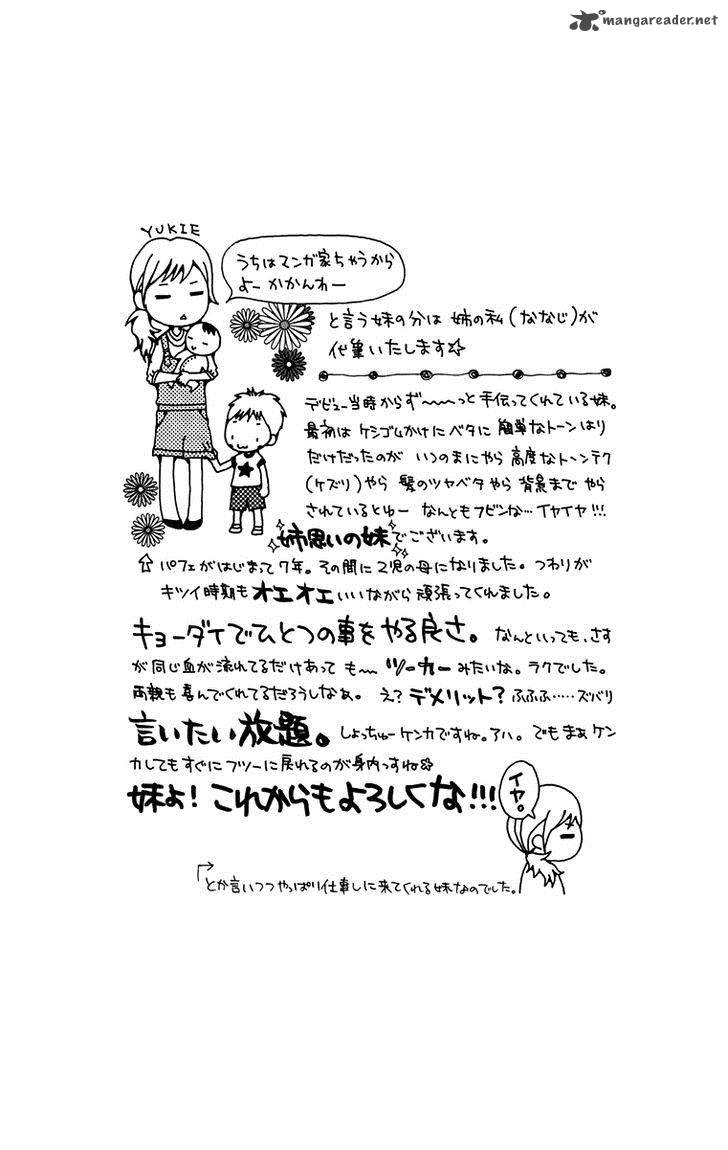 mangareader.net
YUKIE
うちはマンガ家ちゃうから
よーかかんわー
と言う妹の分は 姉の私(ななじ)が
代筆いたします☆
デビュー当時からず〜〜〜っと手伝ってくれている妹。
最初は ケシゴムかけにベタに 簡単なトーンはり
だけだったのが いつのまにやら 高度なトーンテク
(ケズリ)やら 髪のツヤベタやら 背景まで やら
されているとゆー なんともフビンな…イヤイヤ!!!
姉思いの妹でございます。
⇧ パフェがはじまって7年。その間に2児の母になりました。つわりが
キツイ時期も オエオエ いいながら頑張ってくれました。
キョーダイでひとつの事をやる良さ。 なんといっても、さす
が同じ血が流れてるだけあって も〜 ツーカー みたいな。ラクでした。
両親も喜んでくれてるだろうしなぁ。 え? デメリット? ふふふ……ズバリ
言いたい放題。 しょっちゅーケンカですね。アハ。 でもまぁケン
カしてもすぐにフツーに戻れるのが身内っすね☆
妹よ! これからもよろしくな!!!
イヤ。
とか言いつつやっぱり仕事しに来てくれる妹なのでした。